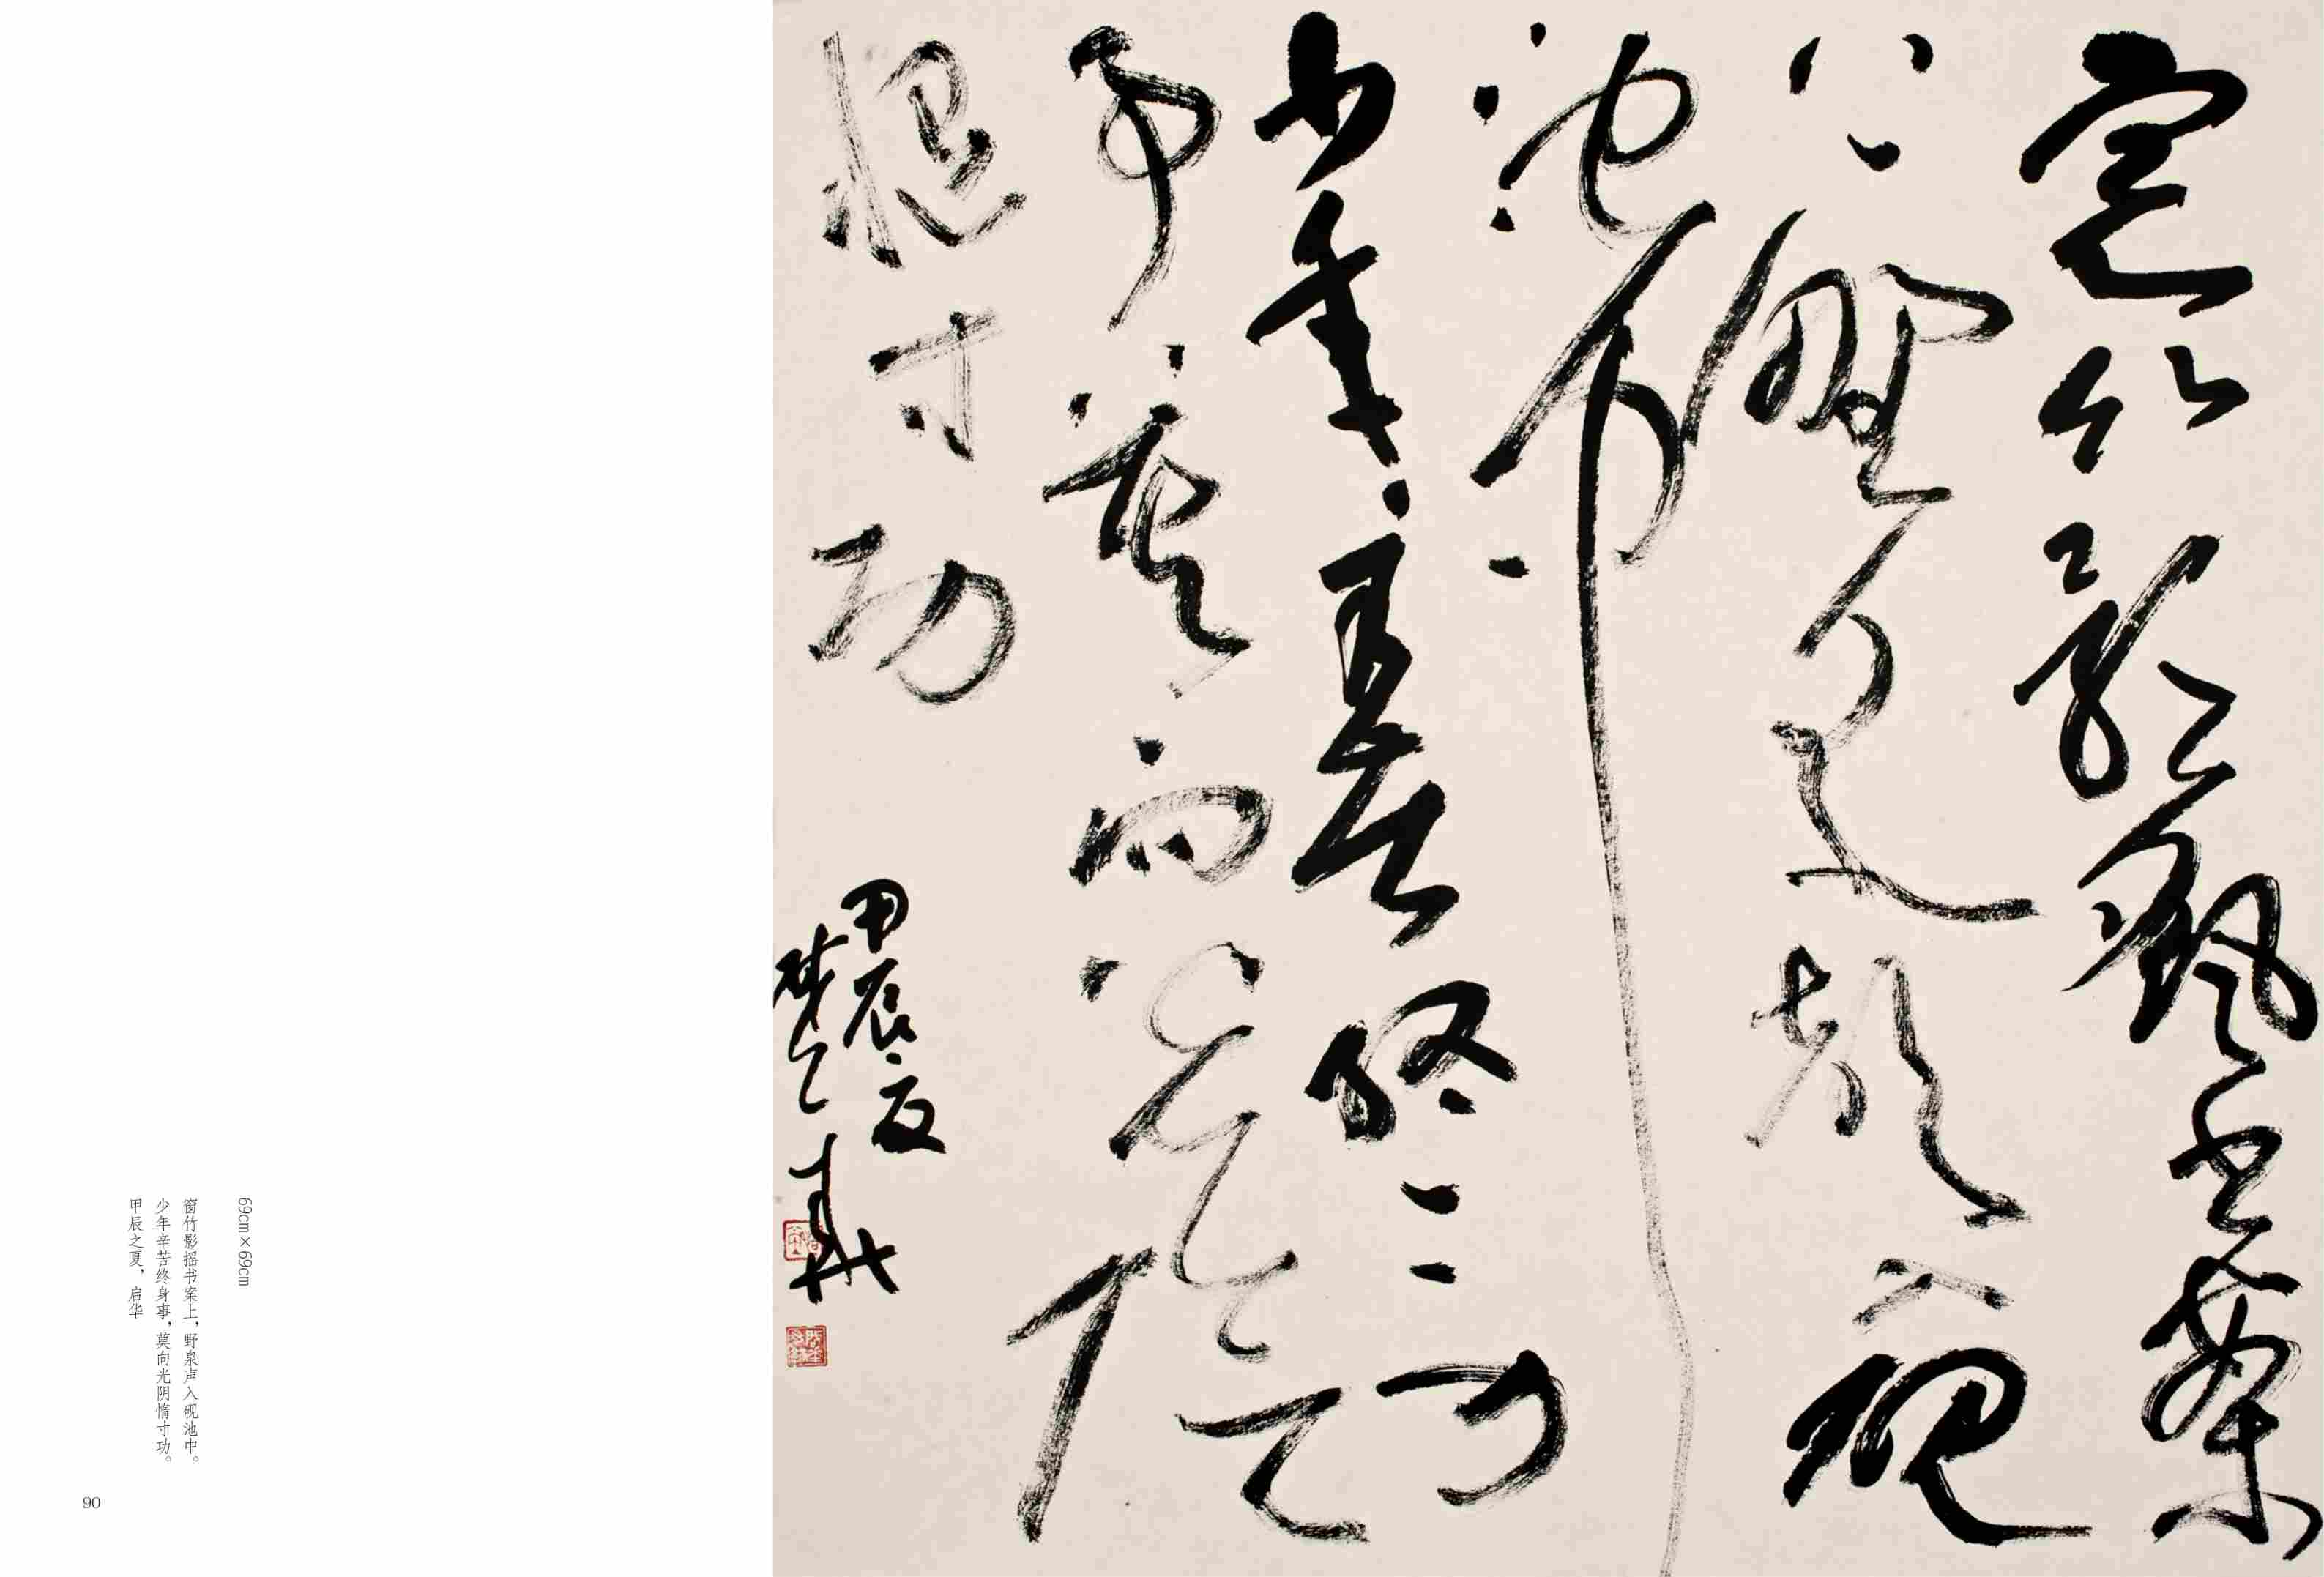 窗竹影摇書案
上野泉聲入硯
池中
少年辛苦終身
事莫向光陰
惰寸功
甲辰之夏
69cm×69cm
窗竹影摇书案上，野泉声入砚池中。
少年辛苦终身事，莫向光阴惰寸功。
甲辰之夏，启华
90